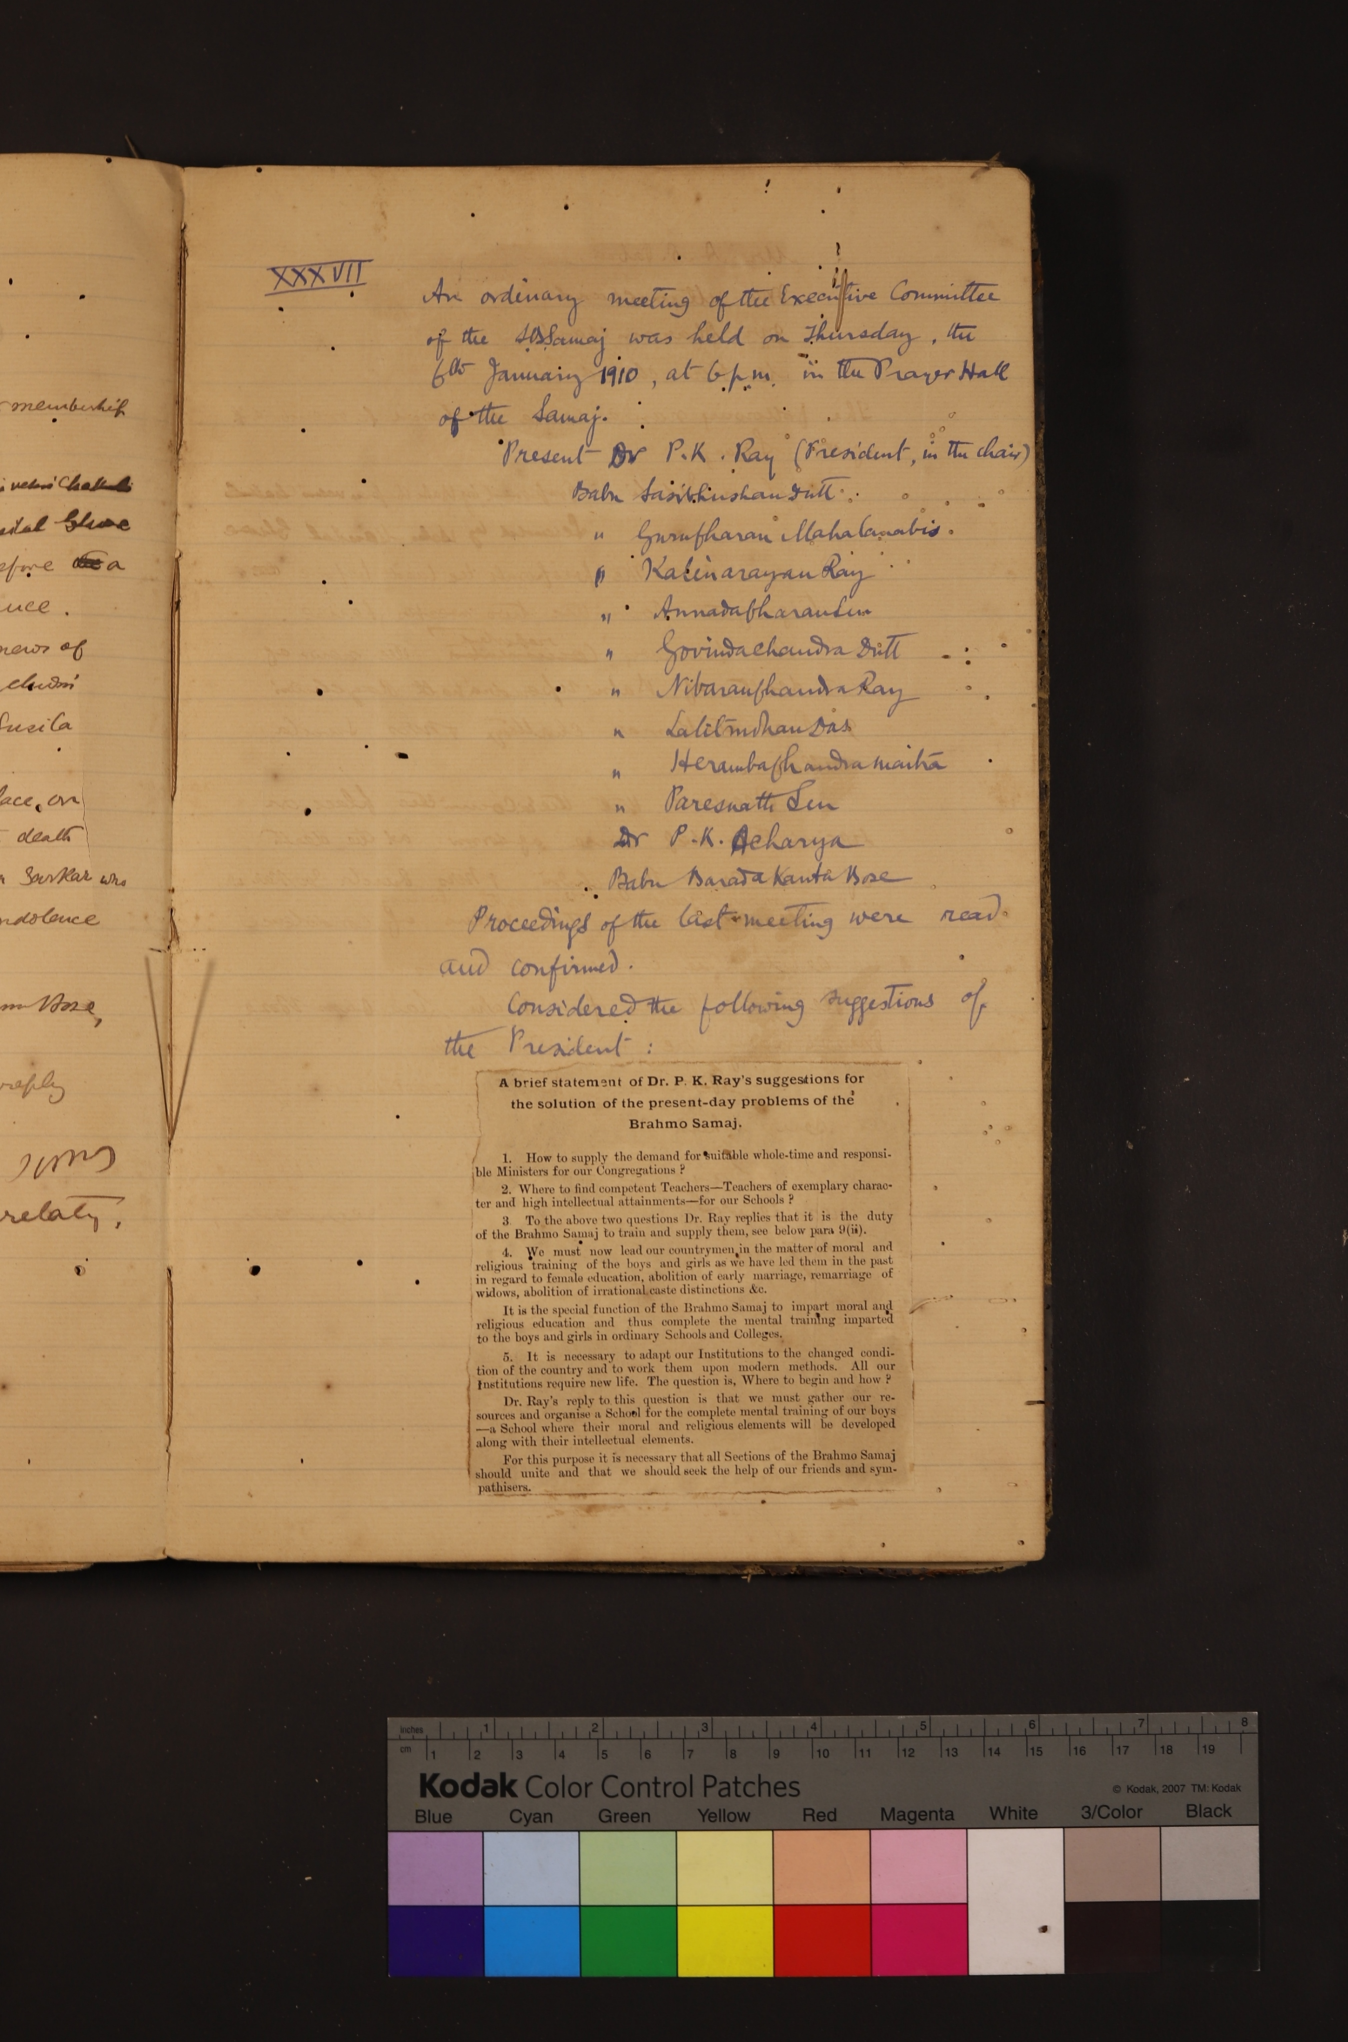 membership
efore a
uce.
news of
chudri
Susila
lace, on
death
Sarkar who
ndolence
Bose,
reply
relaty,
XXXVII
An ordinary meeting of the Executive Committee
of the SBSamaj was held on Thursday, the
6th January 1910, at 6 p.m. in the Prayer Hall
of the Samaj.
Present Dr P.K. Ray (President, in the chair)
Babu Sasibhushan Dutt
" Gurucharan Mahalanabis.
" Kalinarayan Ray
" Annadacharan Sen
" Govindachandra Dutt
" Nibaranchandra Ray
" Lalitmohan Das
" Herambachandra Maitra
" Paresnath Sen
Dr P.K. Acharya
Babu Barada Kanta Bose
Proceedings of the last meeting were read
and confirmed.
Considered the following suggestions of
the President :
A brief statement of Dr. P. K. Ray's suggestions for
the solution of the present-day problems of the
Brahmo Samaj.
1. How to supply the demand for suitable whole-time and responsi-
ble Ministers for our Congregations ?
2. Where to find competent Teachers—Teachers of exemplary charac-
ter and high intellectual attainments—for our Schools ?
3. To the above two questions Dr. Ray replies that it is the duty
of the Brahmo Samaj to train and supply them, see below para 9(ii).
4. We must now lead our countrymen in the matter of moral and
religious training of the boys and girls as we have led them in the past
in regard to female education, abolition of early marriage, remarriage of
widows, abolition of irrational caste distinctions &c.
It is the special function of the Brahmo Samaj to impart moral and
religious education and thus complete the mental training imparted
to the boys and girls in ordinary Schools and Colleges.
5. It is necessary to adapt our Institutions to the changed condi-
tion of the country and to work them upon modern methods. All our
Institutions require new life. The question is, Where to begin and how ?
Dr. Ray's reply to this question is that we must gather our re-
sources and organise a School for the complete mental training of our boys
—a School where their moral and religious elements will be developed
along with their intellectual elements.
For this purpose it is necessary that all Sections of the Brahmo Samaj
should unite and that we should seek the help of our friends and sym-
pathisers.
Inches 1 2 3 4 5 6 7 8
cm 1 2 3 4 5 6 7 8 9 10 11 12 13 14 15 16 17 18 19
Kodak Color Control Patches © Kodak, 2007 TM: Kodak
Blue Cyan Green Yellow Red Magenta White 3/Color Black